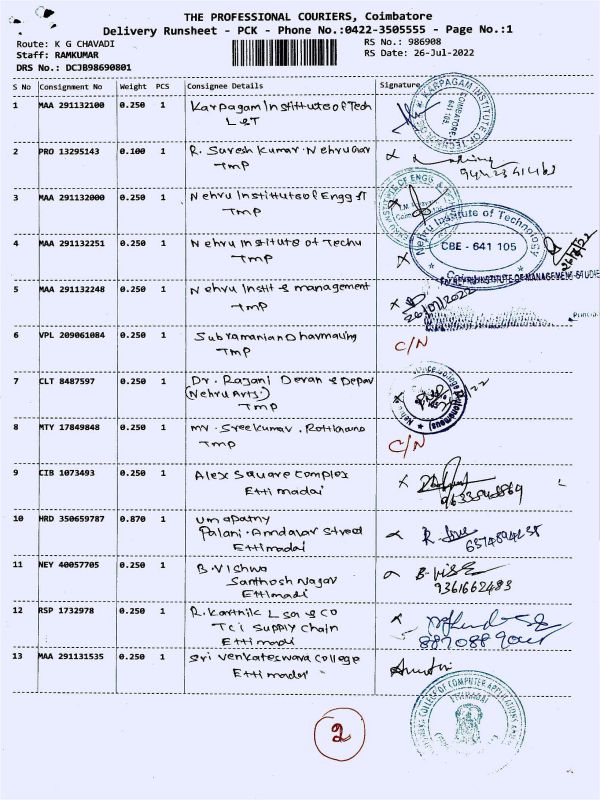 THE PROFESSIONAL COURIERS, Coimbatore
Delivery Runsheet - PCK - Phone No.:0422-3505555 - Page No.:1
Route: K G CHAVADI
RS No.: 986908
Staff: RAMKUMAR
RS Date: 26-Jul-2022
DRS No.: DCJB98690801
S No Consignment No Weight PCS Consignee Details Signature
1 MAA 291132100 0.250 1 Karpagam Institute of Tech
L&T
KARPAGAM INSTITUTE OF TECH
COIMBATORE
641 105
2 PRO 13295143 0.100 1 R. Suresh Kumar. Nehru
TMP
3 MAA 291132000 0.250 1 Nehru Institute of Engg &T
TMP
INSTITUTE OF ENGG &
4 MAA 291132251 0.250 1 Nehru Institute of Techn
TMP
Nehru Institute of Technology
CBE - 641 105
26/7/22
5 MAA 291132248 0.250 1 Nehru Instit & management
TMP
For NEHRU INSTITUTE OF MANAGEMENT STUDIE
26/07/2022
6 VPL 209061084 0.250 1 Subramanian Dharmauing
TMP
C/N
7 CLT 8487597 0.250 1 Dr. Rajani Devan & Depar
(Nehru Arts.)
TMP
8 MTY 17849848 0.250 1 mr. Sreekumar.
TMP
C/N
9 CIB 1073493 0.250 1 Alex Square Complex
Ettimadai
10 HRD 350659787 0.870 1 umapathy
Palani. Andavar Street
Ettimadai
11 NEY 40057705 0.250 1 B. Vishwa
Santhosh Nagar
Ettimadi
B. Vis
9361662483
12 RSP 1732978 0.250 1 R. Karthik L
Tci Supply Chain
Ettimadi
13 MAA 291131535 0.250 1 Sri Venkateswara College
Ettimadai
COLLEGE OF COMPUTER APPLICATIONS
ETTIMADAI
2